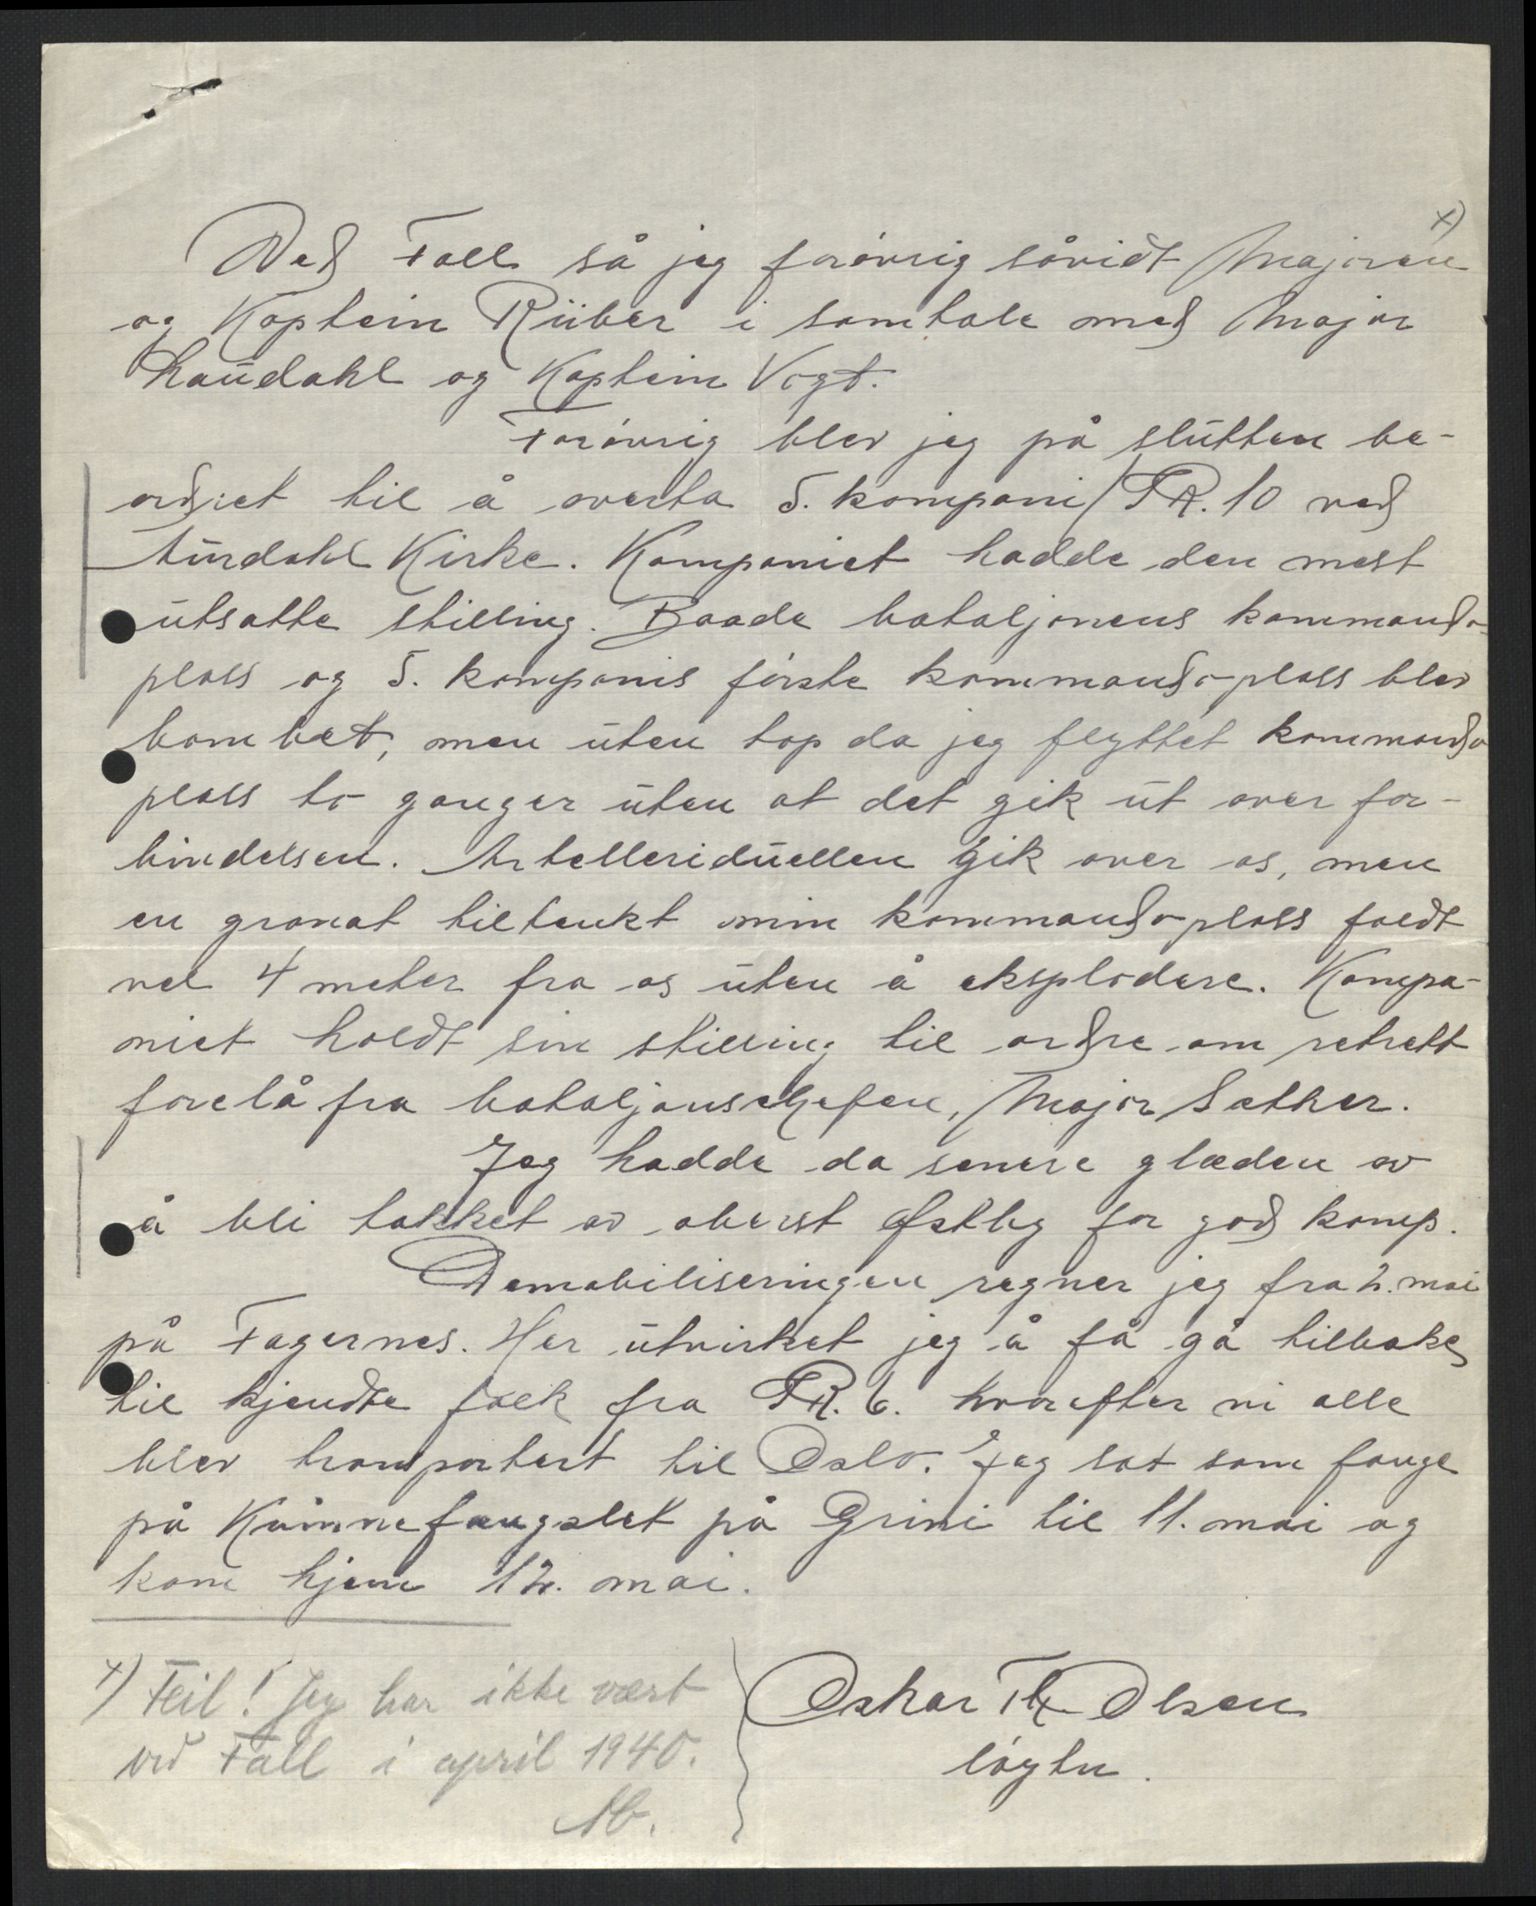 x)
Ved Fall så jeg forøvrig såvidt Majoren
og Kaptein Rüber i samtale med Major
Haudahl og Kaptein Vogt.
Forøvrig blev jeg på slutten be-
ordret til å overta 5. kompani/I.R. 10 ved
Aurdahl Kirke. Kompaniet hadde den mest
utsatte stilling. Baade bataljonens kommando-
plass og 5. kompanis første kommando-plass blev
bombet, men uten tap da jeg flyttet kommando
plass to ganger uten at det gik ut over for-
bindelsen. Artelleriduellen gik over os, men
en granat tiltenkt min kommando-plass faldt
vel 4 meter fra os uten å eksplodere. Kompa-
niet holdt sin stilling til ordre om retrett
forelå fra bataljonschefen, Major Sæther.
Jeg hadde da senere glæden av
å bli takket av oberst Østby for god kamp.
Demobiliseringen regner jeg fra 2. mai
på Fagernes. Her utvirket jeg å få gå tilbake
til kjendte folk fra I.R. 6. hvorefter vi alle
blev transportert til Oslo. Jeg sat som fange
på Kvinnefængslet på Grini til 11. mai og
kom hjem 12. mai.
x) Feil! Jeg har ikke vært
ved Fall i april 1940.
Oskar Th. Olsen
løytn.